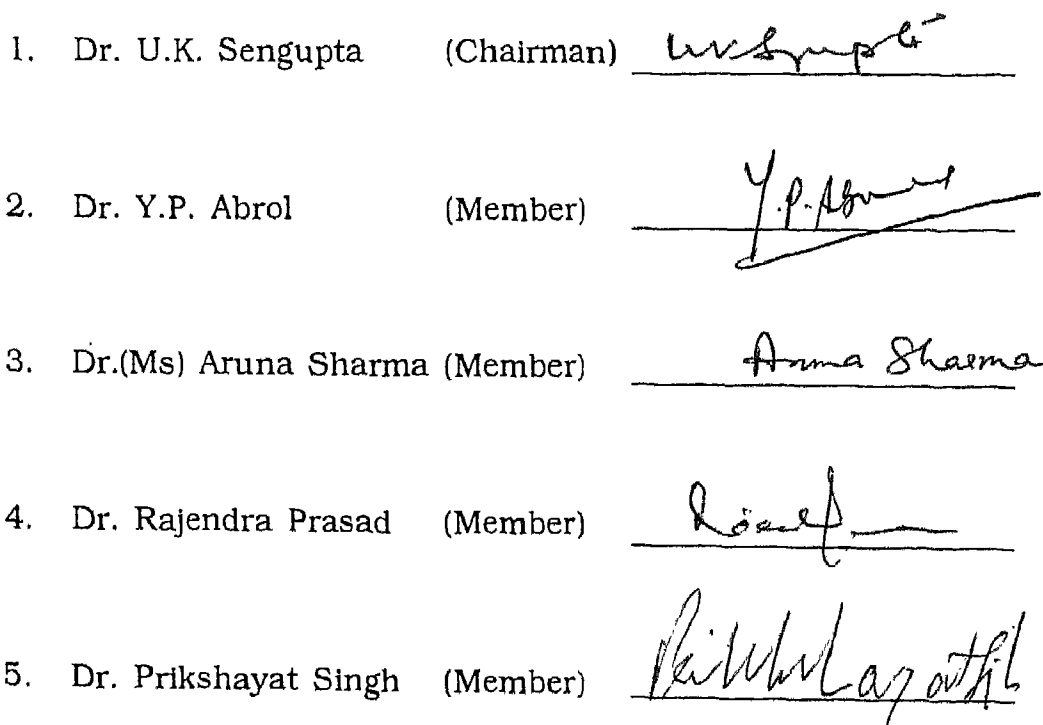 1. Dr. U.K. Sengupta (Chairman) UKSengupta
2. Dr. Y.P. Abrol (Member) Y.P. Abrol
3. Dr.(Ms) Aruna Sharma (Member) Aruna Sharma
4. Dr. Rajendra Prasad (Member)
5. Dr. Prikshayat Singh (Member)